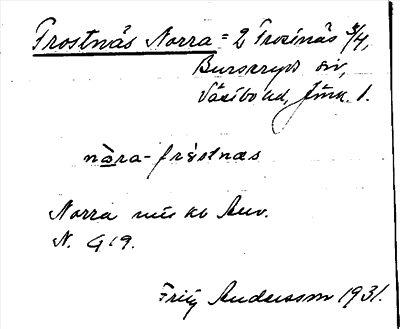 Frostnäs Norra = 2 Frostnäs 3/4,
Burseryds sn,
Västbo hd, Jönk. l.
nara-fròstnæs
Norra
N. G 19.
Fritz Andersson 1931.